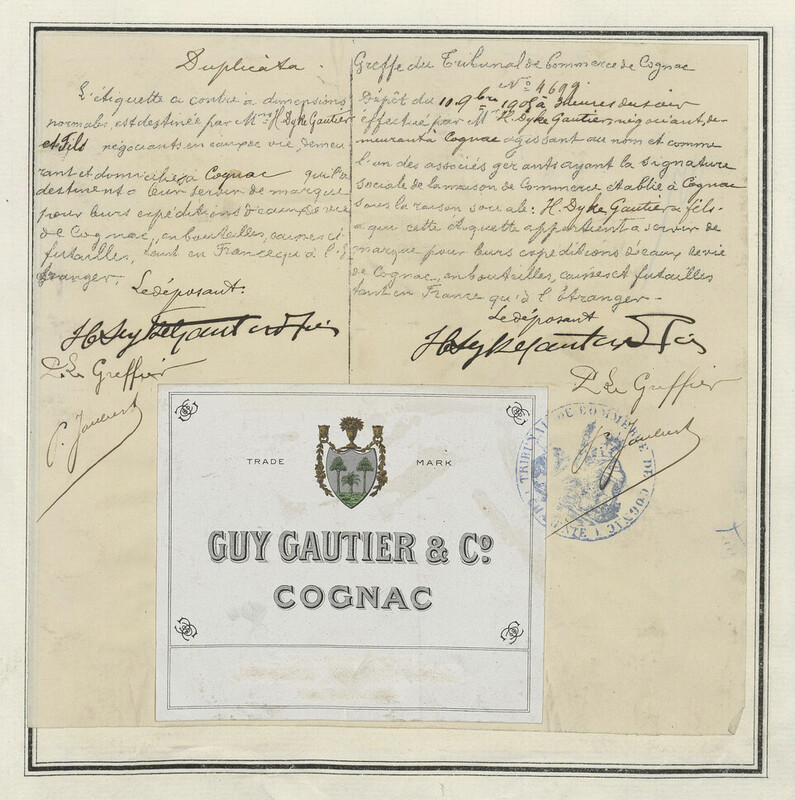 Duplicata.
L'étiquette ci contre à dimensions
normales, est destinée par Mrs H. Dyke Gautier
et Fils négociants en eaux de vie, demeu
rant et domiciliés à Cognac qu'ils
destinent à leur servir de marque
pour leurs expéditions d'eaux de vie
de Cognac, en bouteilles, caisses et
futailles, tant en France qu'à l'É
tranger.
Le déposant:
H Dyke Gautier & Fils
P. Le Greffier
P. Jaubert
Greffe du Tribunal de Commerce de Cognac
No 4699.
Dépôt du 10 9bre 190 à 3 heures du soir
effectué par Mr H. Dyke Gautier, négociant, de-
meurant à Cognac agissant au nom et comme
l'un des associés gérants ayant la signature
sociale de la maison de Commerce établie à Cognac
sous la raison sociale: H. Dyke Gautier & fils.
à qui cette étiquette appartient à servir de
marque pour leurs expéditions d'eaux de vie
de Cognac, en bouteilles, caisses et futailles
tant en France qu'à l'Étranger.
Le déposant
H Dyke Gautier & Fils
P. Le Greffier
P. Jaubert
TRIBUNAL DE COMMERCE DE COGNAC
TRADE MARK
GUY GAUTIER & Co.
COGNAC